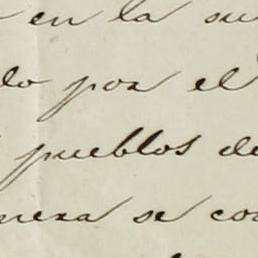 en la su
do por el
pueblos de
nera se co